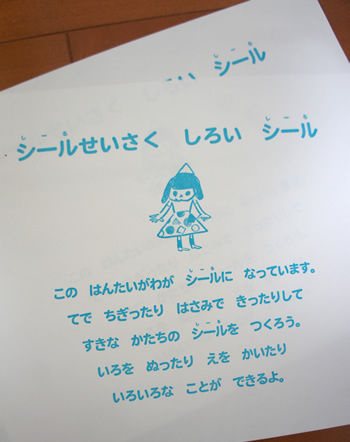 い シール
しーる
シールせいさく しろい シール
しーる
しーる
この はんたいがわが シールに なっています。
しーる
てで ちぎったり はさみで きったりして
すきな かたちの シールを つくろう。
しーる
いろを ぬったり えを かいたり
いろいろな ことが できるよ。